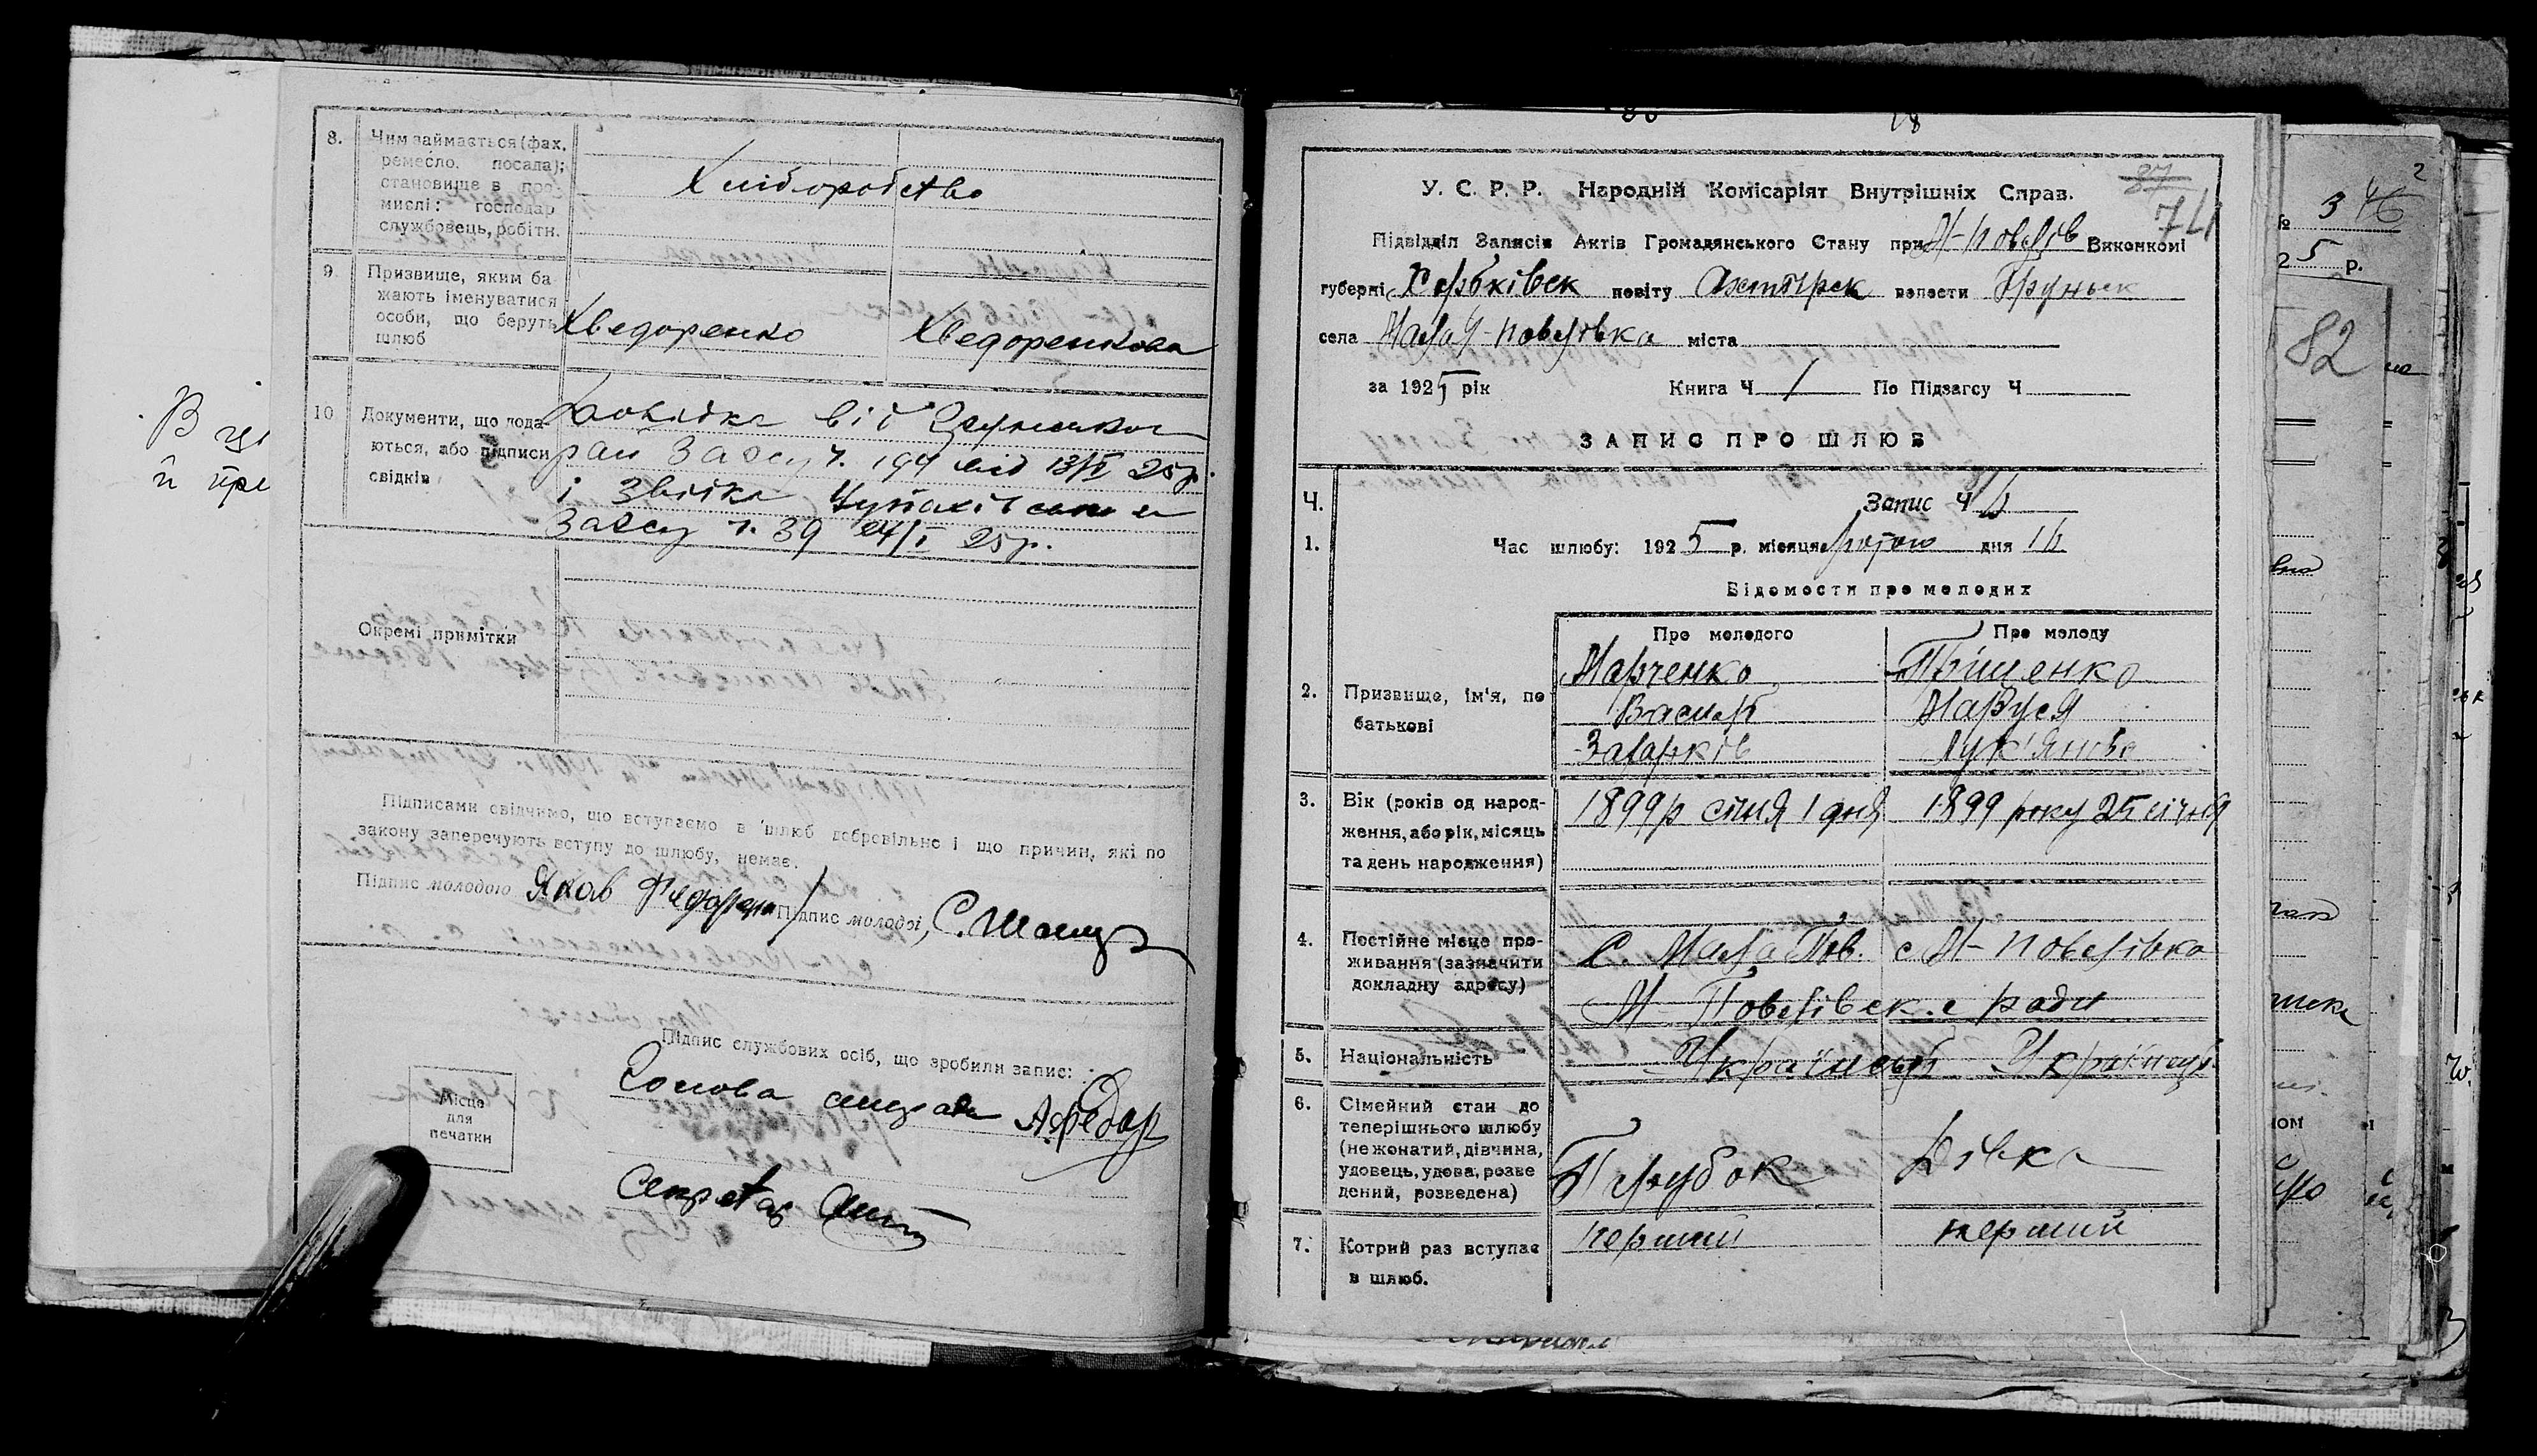 8. Чим займається (фах,
ремесло, посада);
становище в про-
мислі: господар
службовець, робітн.
Хліборобство
9. Призвище, яким ба-
жають іменуватися
особи, що беруть
шлюб
Хведоренко Хведоренкова
10 Документи, що пода-
ються, або підписи
свідків
Довідка від
рай Загсу ч. 194 від 13/II 25р.
і Звістка
Загсу ч. 39 24/I 25р.
Окремі примітки
Підписами свідчимо, що вступаємо в шлюб добровільно і що причин, які по
закону заперечують вступу до шлюбу, немає.
Підпис молодого Яков Підпис молодої, С.
Підпис службових осіб, що зробили запис:
Голова
Місце
для
печатки
Секретар
В
й
37
74
У. С. Р. Р. Народній Комісаріят Внутрішніх Справ.
Підвідділ Записів Актів Громадянського Стану при М-Повелів Виконкомі
губерні Харьківск повіту Охтирск волости Груньск
села Малая-Повелівка міста
за 1925 рік Книга Ч 1 По Підзагсу Ч
ЗАПИС ПРО ШЛЮБ
Ч. Запис Ч
1. Час шлюбу: 1925 р. місяця лютого дня 16
Відомости про молодих
Про молодого Про молоду
2. Призвище, ім'я, по
батькові
Марченко Грищенко
Василь Маруся
Захарків Лук'янова
3. Вік (років од народ-
ження, або рік, місяць
та день народження)
1899р січня 1 дня 1899 року 25 січня
4. Постійне місце про-
живання (зазначити
докладну адресу)
С. Мала Пов. с М-Повелівка
М-Повелівск. с ради
5. Національність Українець
6. Сімейний стан до
теперішнього шлюбу
(не жонатий, дівчина,
удовець, удова, розве
дений, розведена)
Парубок Дівка
7. Котрий раз вступає
в шлюб.
перший перший
№ 3 46
2
25 р.
82